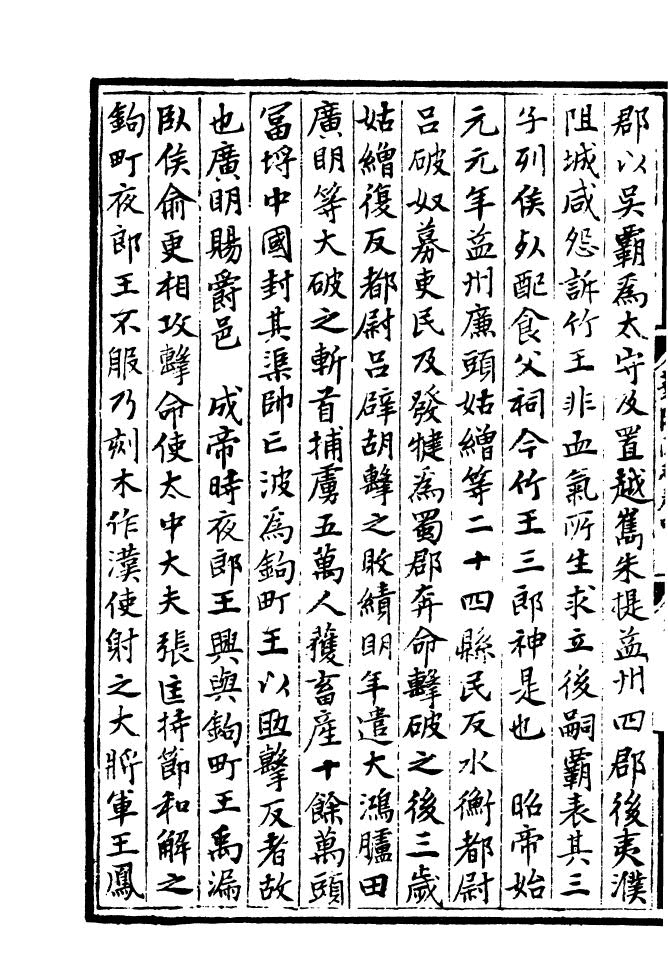 郡以吴霸爲太守及置越嶲朱提益州四郡後夷濮
阻城咸怨訴竹王非血氣所生求立後嗣霸表其三
子列侯死配食父祠今竹王三郎神是也　昭帝始
元元年益州廉頭姑繒等二十四縣民反水衡都尉
吕破奴募吏民及發犍爲蜀郡奔命擊破之後三歲
姑繒復反都尉吕辟胡擊之敗績明年遣大鴻臚田
廣明等大破之斬首捕虜五萬人獲畜産十餘萬頭
富埒中國封其渠帥亡波爲鉤町王以助擊反者故
也廣明賜爵邑　成帝時夜郎王興與鉤町王禹漏
臥侯俞更相攻擊命使太中大夫張匡持節和解之
鉤町夜郎王不服乃刻木作漢使射之大將軍王鳳